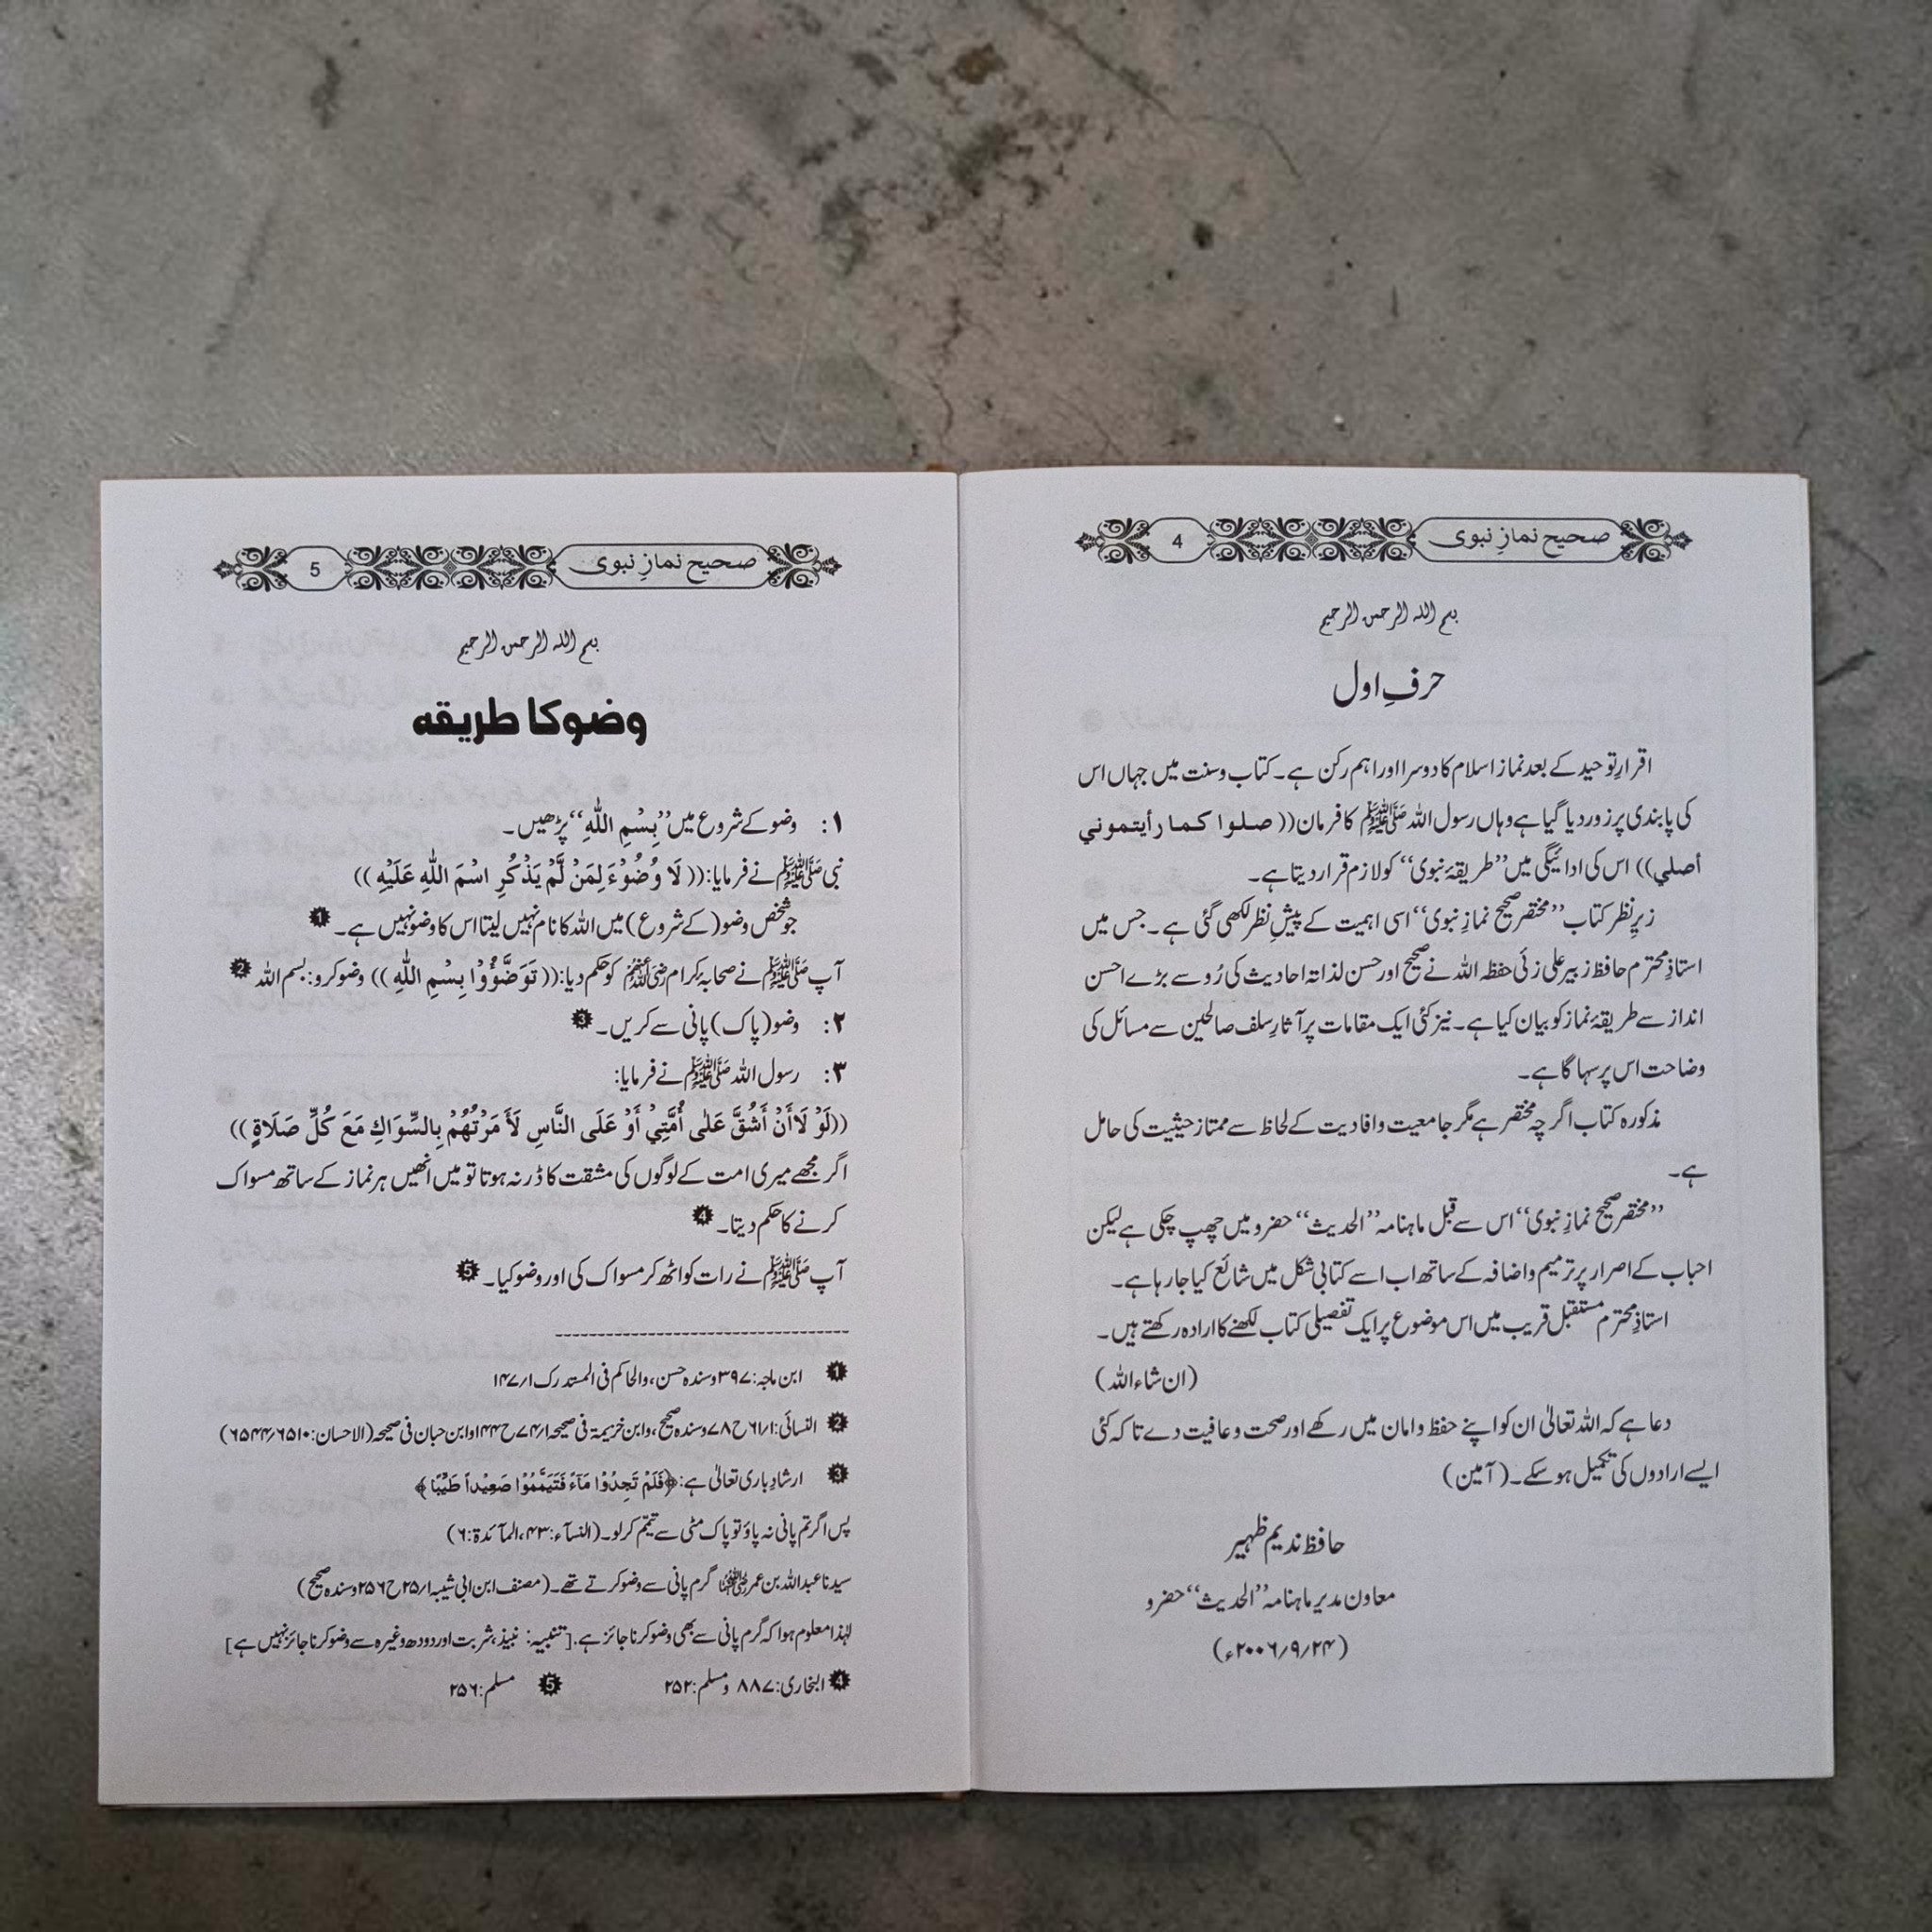 صحیح نمازِ نبوی 4
بسم الله الرحمن الرحیم
حرفِ اول
اقرارِ توحید کے بعد نماز اسلام کا دوسرا اور اہم رکن ہے۔ کتاب و سنت میں جہاں اس
کی پابندی پر زور دیا گیا ہے وہاں رسول اللہ ﷺ کا فرمان ((صلوا كما رأيتموني
أصلي)) اس کی ادائیگی میں ’’طریقۂ نبوی‘‘ کو لازم قرار دیتا ہے۔
زیرِ نظر کتاب ’’مختصر صحیح نمازِ نبوی‘‘ اسی اہمیت کے پیشِ نظر لکھی گئی ہے۔ جس میں
استاذِ محترم حافظ زبیر علی زئی حفظہ اللہ نے صحیح اور حسن لذاتہ احادیث کی رُو سے بڑے احسن
انداز سے طریقۂ نماز کو بیان کیا ہے۔ نیز کئی ایک مقامات پر آثارِ سلف صالحین سے مسائل کی
وضاحت اس پر سہاگا ہے۔
مذکورہ کتاب اگرچہ مختصر ہے مگر جامعیت و افادیت کے لحاظ سے ممتاز حیثیت کی حامل
ہے۔
’’مختصر صحیح نمازِ نبوی‘‘ اس سے قبل ماہنامہ ’’الحدیث‘‘ حضرو میں چھپ چکی ہے لیکن
احباب کے اصرار پر ترمیم و اضافہ کے ساتھ اب اسے کتابی شکل میں شائع کیا جا رہا ہے۔
استاذِ محترم مستقبل قریب میں اس موضوع پر ایک تفصیلی کتاب لکھنے کا ارادہ رکھتے ہیں۔
(ان شاء اللہ)
دعا ہے کہ اللہ تعالیٰ ان کو اپنے حفظ و امان میں رکھے اور صحت و عافیت دے تاکہ کئی
ایسے ارادوں کی تکمیل ہو سکے۔ (آمین)
حافظ ندیم ظہیر
معاون مدیر ماہنامہ ’’الحدیث‘‘ حضرو
(۲۴/۹/۲۰۰۶ء)
صحیح نمازِ نبوی 5
بسم الله الرحمن الرحیم
وضو کا طریقہ
۱: وضو کے شروع میں ’’بِسْمِ اللّٰہِ‘‘ پڑھیں۔
نبی ﷺ نے فرمایا: ((لَا وُضُوْءَ لِمَنْ لَّمْ يَذْكُرِ اسْمَ اللّٰهِ عَلَيْهِ))
جو شخص وضو (کے شروع) میں اللہ کا نام نہیں لیتا اس کا وضو نہیں ہے۔ ❶
آپ ﷺ نے صحابہ کرام رضی اللہ عنہم کو حکم دیا: ((تَوَضَّؤُوْا بِسْمِ اللّٰهِ)) وضو کرو: بسم اللہ ❷
۲: وضو (پاک) پانی سے کریں۔ ❸
۳: رسول اللہ ﷺ نے فرمایا:
((لَوْ لَا أَنْ أَشُقَّ عَلٰى أُمَّتِيْ أَوْ عَلَى النَّاسِ لَأَمَرْتُهُمْ بِالسِّوَاكِ مَعَ كُلِّ صَلَاةٍ))
اگر مجھے میری امت کے لوگوں کی مشقت کا ڈر نہ ہوتا تو میں انھیں ہر نماز کے ساتھ مسواک
کرنے کا حکم دیتا۔ ❹
آپ ﷺ نے رات کو اٹھ کر مسواک کی اور وضو کیا۔ ❺
❶ ابن ماجہ: ۳۹۷ وسندہ حسن، والحاکم فی المستدرک ۱/۱۴۷
❷ النسائی: ۱/۶۱ ح ۷۸ وسندہ صحیح، وابن خزیمۃ فی صحیحہ ۱/۷۴ ح ۱۴۴ وابن حبان فی صحیحہ (الاحسان: ۶۵۱۰/۶۵۴۴)
❸ ارشادِ باری تعالیٰ ہے: ﴿فَلَمْ تَجِدُوْا مَآءً فَتَيَمَّمُوْا صَعِيْداً طَيِّبًا﴾
پس اگر تم پانی نہ پاؤ تو پاک مٹی سے تیمّم کرلو۔ (النسآء: ۴۳، المآئدۃ: ۶)
سیدنا عبداللہ بن عمر رضی اللہ عنہما گرم پانی سے وضو کرتے تھے۔ (مصنف ابن ابی شیبہ ۱/۲۵ ح ۲۵۶ وسندہ صحیح)
لہٰذا معلوم ہوا کہ گرم پانی سے بھی وضو کرنا جائز ہے۔ [تنبیہ: نبیذ، شربت اور دودھ وغیرہ سے وضو کرنا جائز نہیں ہے]
❹ البخاری: ۸۸۷ ومسلم: ۲۵۲ ❺ مسلم: ۲۵۶